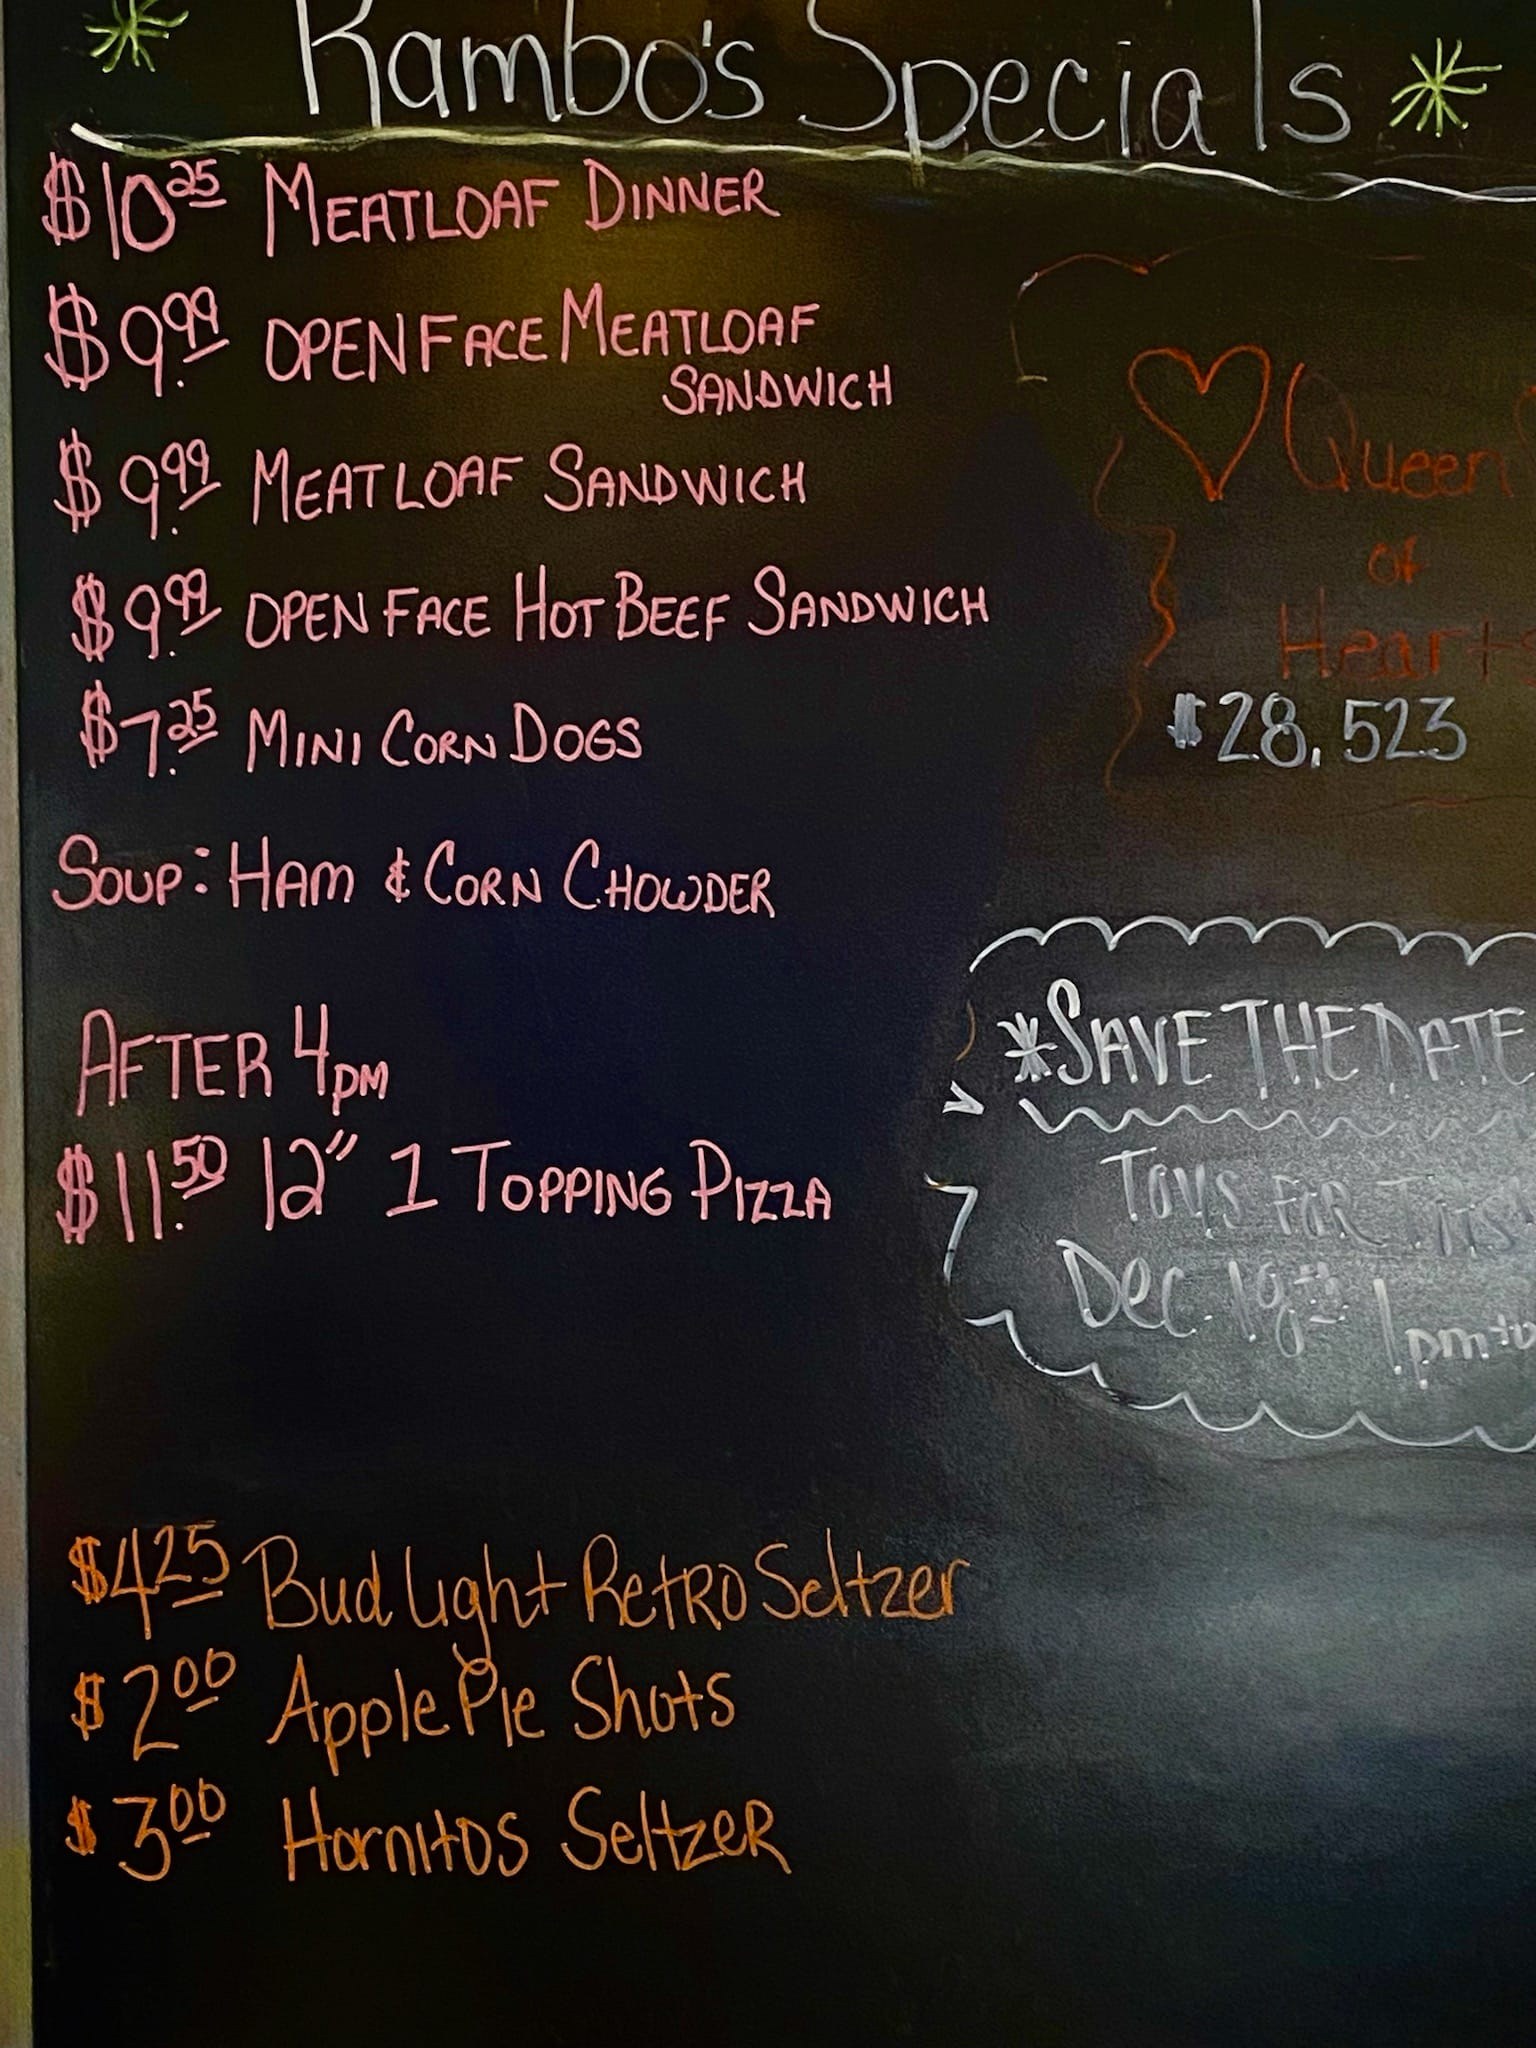 Rambo's Specials
$10.25 MEATLOAF DINNER
$9.99 OPEN FACE MEATLOAF
SANDWICH
$9.99 MEATLOAF SANDWICH
$9.99 OPEN FACE HOT BEEF SANDWICH
$7.25 MINI CORN DOGS
SOUP: HAM & CORN CHOWDER
AFTER 4pm
$11.50 12" 1 TOPPING PIZZA
$4.25 Bud Light Retro Seltzer
$2.00 Apple Pie Shots
$3.00 Hornitos Seltzer
Queen
of
Hearts
$28,523
*SAVE THE DATE
TOYS FOR
Dec. 18th 1pm